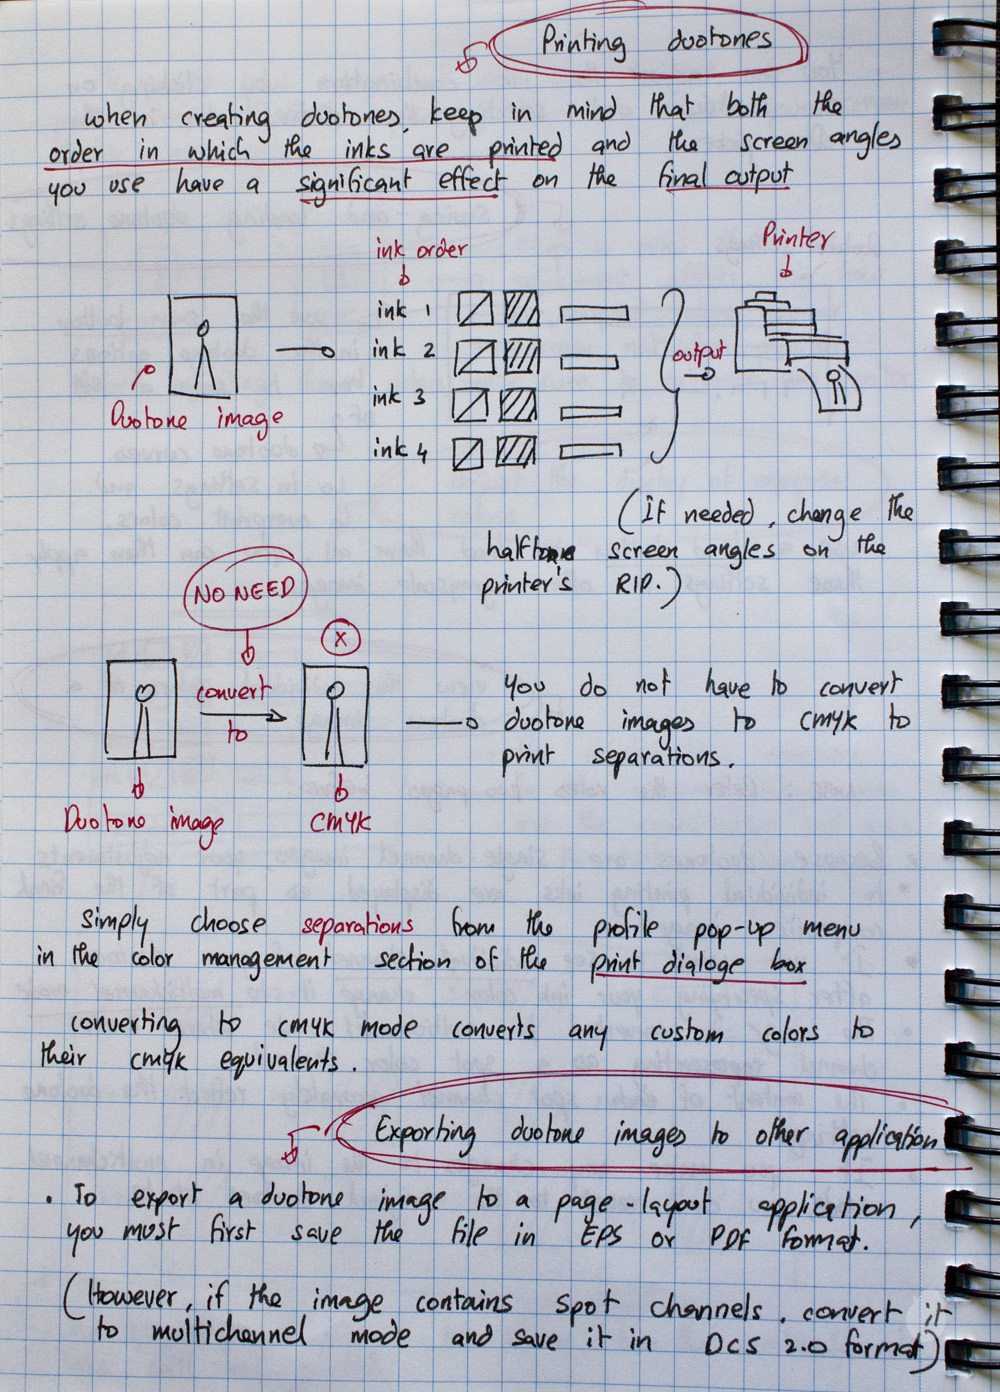 Printing duotones
when creating duotones, keep in mind that both the
order in which the inks are printed and the screen angles
you use have a significant effect on the final output
ink order
Printer
ink 1
ink 2
output
ink 3
Duotone image
ink 4
(If needed, change the
halftone screen angles on the
printer's RIP.)
NO NEED
X
convert
to
You do not have to convert
duotone images to CMYK to
print separations.
Duotone image
CMYK
Simply choose separations from the profile pop-up menu
in the color management section of the print dialoge box
converting to CMYK mode converts any custom colors to
their CMYK equivalents.
Exporting duotone images to other application
• To export a duotone image to a page-layout application,
you must first save the file in EPS or PDF format.
(However, if the image contains spot channels, convert it
to multichannel mode and save it in DCS 2.0 format)